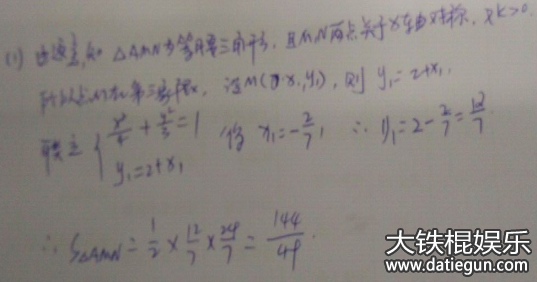 (1) 由题意知 △AMN为等腰三角形, 且M,N两点关于x轴对称, 又k>0.
所以点M在第二象限, 设M(x₁,y₁), 则 y₁=2+x₁.
联立 { x²/4 + y²/3 = 1
y₁=2+x₁ 得 x₁=-2/7, ∴ y₁=2-2/7=12/7.
∴ S△AMN=1/2×12/7×24/7=144/49.
大铁棍娱乐
www.datiegun.com